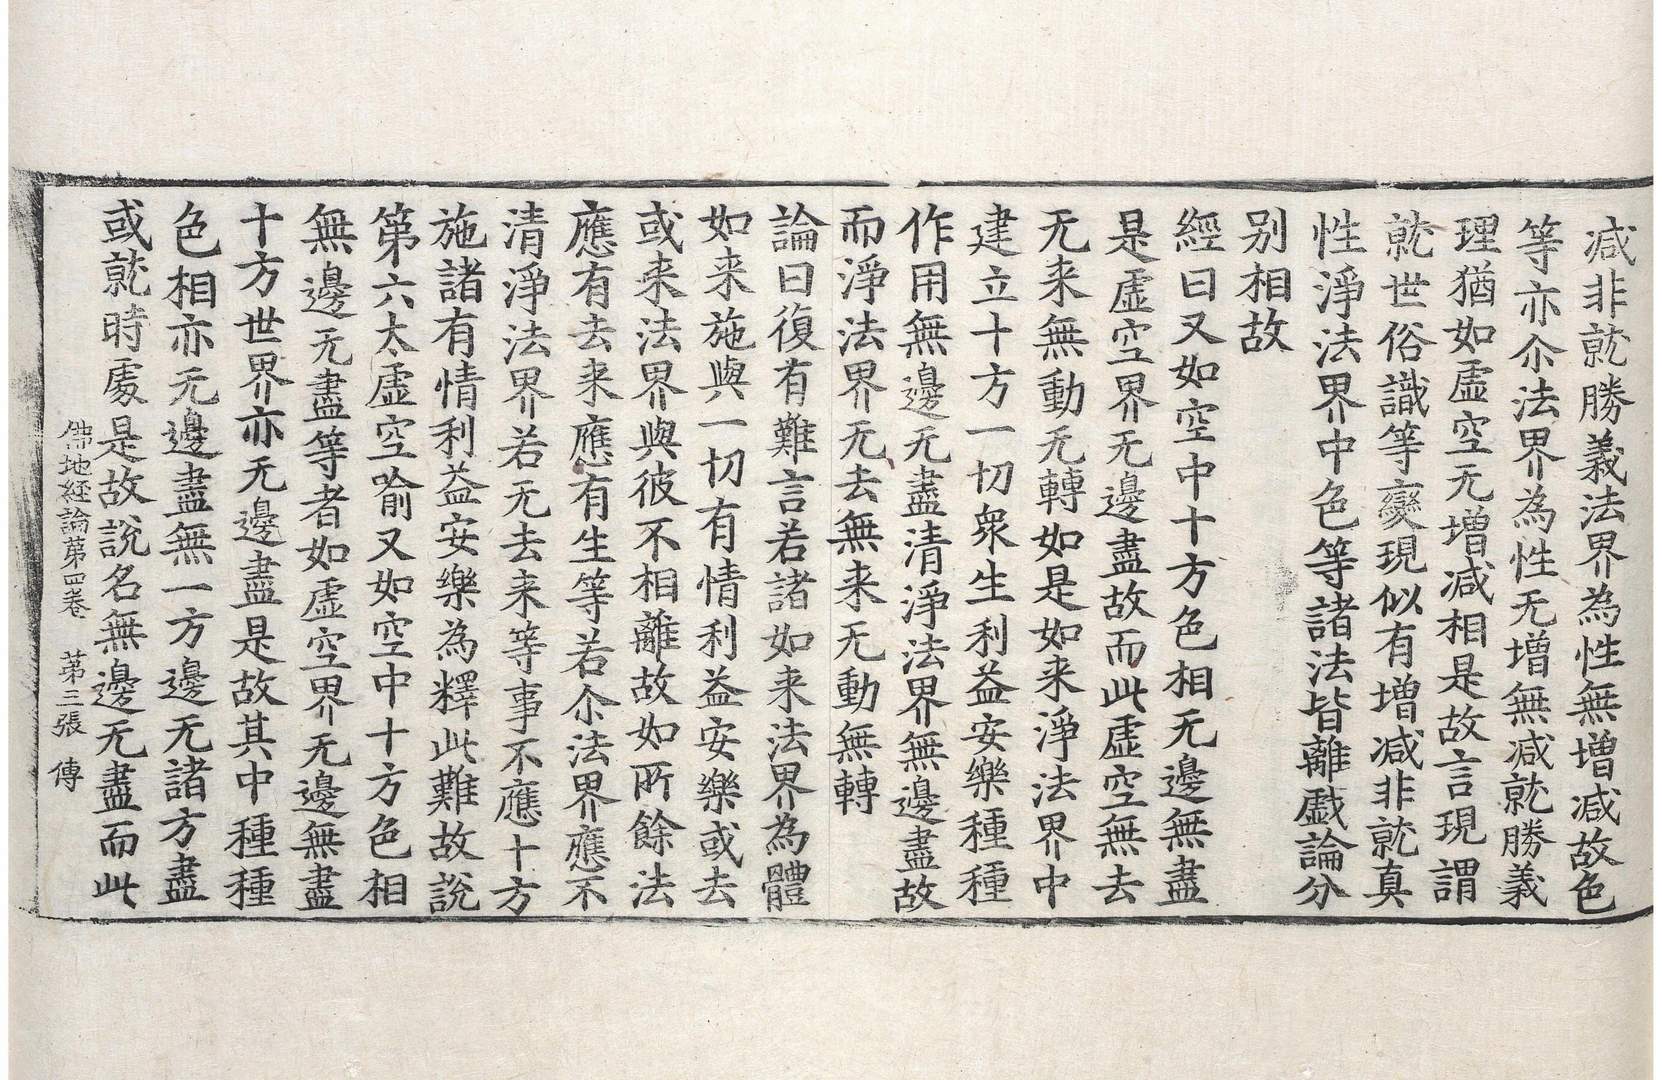 减非就勝義法界為性無增减故色
等亦尒法界為性无增無减就勝義
理猶如虛空无增减相是故言現謂
就世俗識等變現似有增减非就真
性淨法界中色等諸法皆離戱論分
别相故
經曰又如空中十方色相无邊無盡
是虛空界无邊盡故而此虛空無去
无来無動无轉如是如来淨法界中
建立十方一切衆生利益安樂種種
作用無邊无盡清淨法界無邊盡故
而淨法界无去無来无動無轉
論曰復有難言若諸如来法界為體
如来施與一切有情利益安樂或去
或来法界與彼不相離故如所餘法
應有去来應有生等若尒法界應不
清淨法界若无去来等事不應十方
施諸有情利益安樂為釋此難故說
第六太虛空喻又如空中十方色相
無邊无盡等者如虛空界无邊無盡
十方世界亦无邊盡是故其中種種
色相亦无邊盡無一方邊无諸方盡
或就時處是故說名無邊无盡而此
佛地経論第四卷 第三張 傳